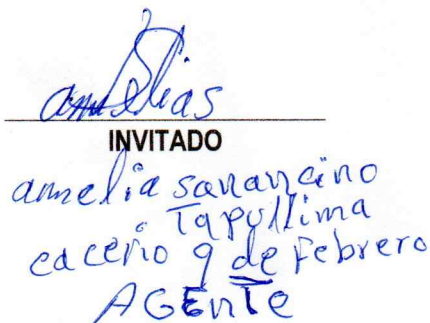 INVITADO
amelia sanancino
Tapullima
cacerio 9 de Febrero
AGENTE